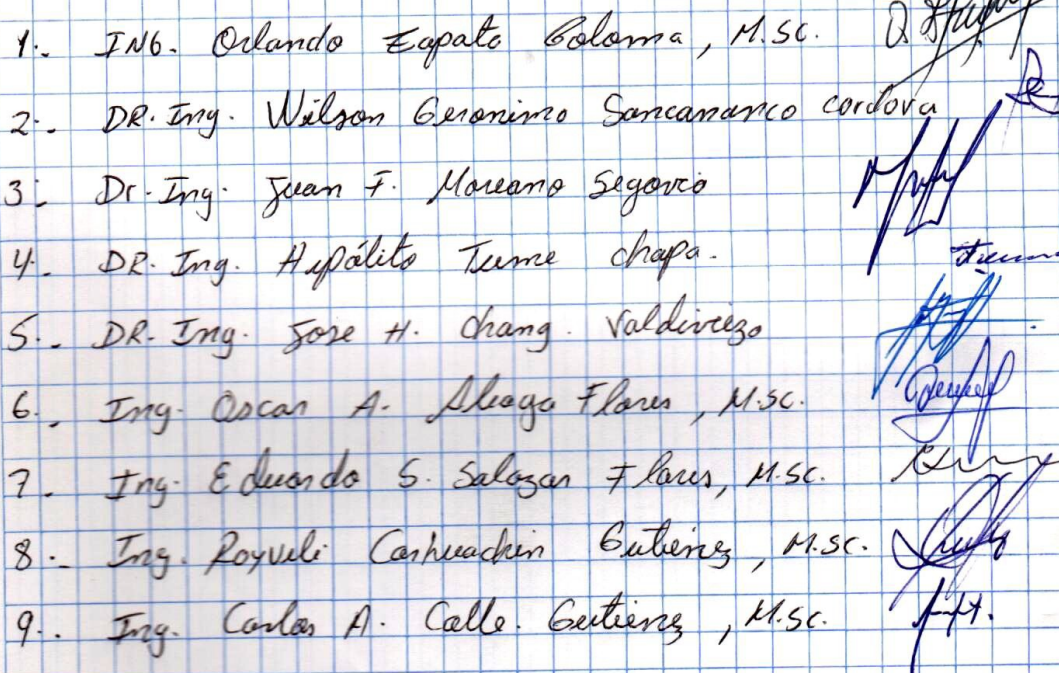 1.- ING. Orlando Zapata Coloma, M.SC.
2.- DR. Ing. Wilson Geronimo Sancarranco cordova
3.- Dr. Ing. Juan F. Moreano Segovia
4.- DR. Ing. Hipólito Tume chapa.
5.- DR. Ing. Jose H. Chang. Valdiviezo
6.- Ing. Oscar A. Aliaga Flores, M.SC.
7.- Ing. Eduardo S. Salazar Flores, M.SC.
8.- Ing. Royveli Carhuachin Gutierrez, M.SC.
9.- Ing. Carlos A. Calle. Gutierrez, M.SC.